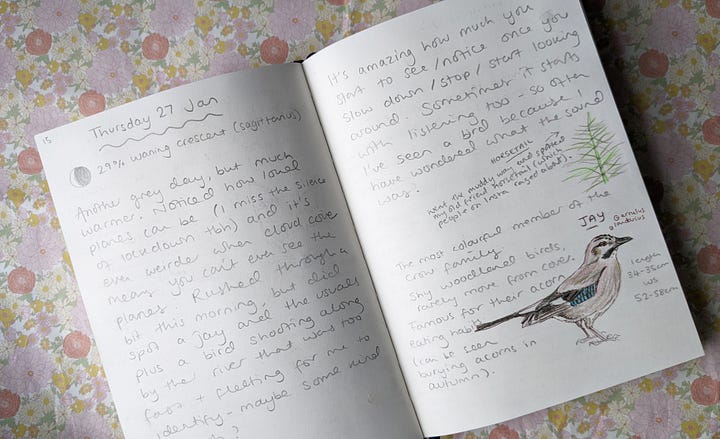 15
Thursday 27 Jan
29% waning crescent (Sagittarius)
Another grey day, but much
warmer. Noticed how loud
planes can be (I miss the silence
of lockdown tbh) and it's
even weirder when cloud cover
means you can't even see the
planes. Rushed through a
bit this morning, but did
spot a jay and the usuals
plus a bird shooting along
by the river that was too
fast + fleeting for me to
identify - maybe some kind
It's amazing how much you
start to see/notice once you
slow down/stop/start looking
around. Sometimes it starts
with listening too - so often
I've seen a bird because I
have wondered what the sound
was.
HORSETAIL
went the muddy way and spotted
my old friend horsetail (which
people on insta raged about).
The most colourful member of the
crow family
Shy woodland birds,
rarely move from cover.
Famous for their acorn
eating habits
(can be seen
burying acorns in
autumn).
JAY
Garrulus
glandarius
length
34-35cm
WS
52-58cm